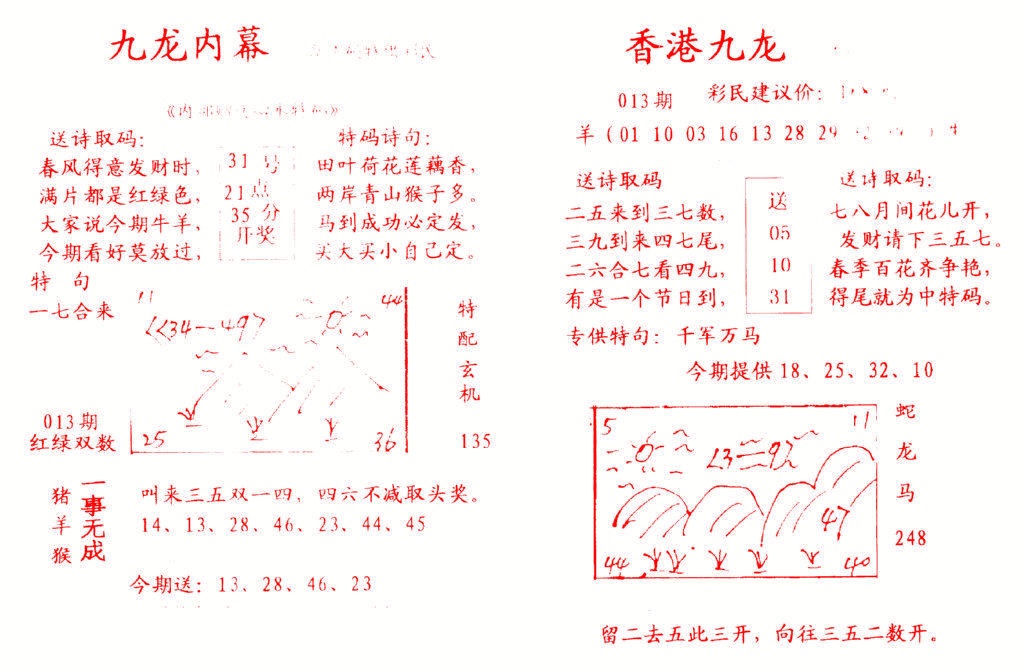 九龙内幕
送诗取码：
春风得意发财时，
满片都是红绿色，
大家说今期牛羊，
今期看好莫放过，
31 号
21 点
35 分
开奖
特码诗句：
田叶荷花莲藕香，
两岸青山猴子多。
马到成功必定发，
买大买小自己定。
特 句
一七合来
013期
红绿双数
11
44
25
36
特配玄机
135
猪羊猴
一事无成
叫来三五双一四，四六不减取头奖。
14、13、28、46、23、44、45
今期送：13、28、46、23
香港九龙
013期
彩民建议价：
羊（01 10 03 16 13 28 29
送诗取码
二五来到三七数，
三九到来四七尾，
二六合七看四九，
有是一个节日到，
送
05
10
31
送诗取码：
七八月间花儿开，
发财请下三五七。
春季百花齐争艳，
得尾就为中特码。
专供特句：千军万马
今期提供18、25、32、10
5
11
47
44
40
蛇
龙
马
248
留二去五此三开，向往三五二数开。